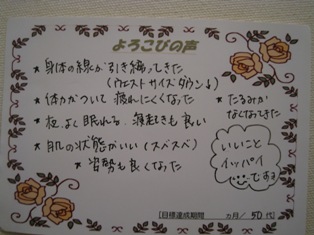 よろこびの声
★ 身体の線が引き締ってきた
(ウエストサイズダウン↓)
★ 体力がついて 疲れにくくなった
★ たるみが
なくなってきた
★ 夜よく眠れる 寝起きも良い
★ 肌の状態がいい(スベスベ)
★ 姿勢も良くなった
いいこと
イッパイ
ですね
[目標達成期間 カ月/50代]